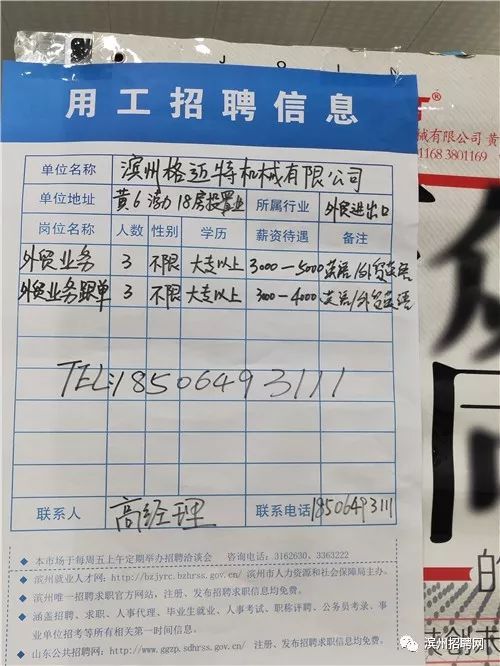 J O I N
用工招聘信息
单位名称 滨州格迈特机械有限公司
单位地址 黄6 渤18 房投置业 所属行业 外贸进出口
岗位名称 人数 性别 学历 薪资待遇 备注
外贸业务 3 不限 大专以上 3000—5000 英语/外贸英语
外贸业务跟单 3 不限 大专以上 3000—4000 英语/外贸英语
TEL:18506493111
联系人 高经理 联系电话 18506493111
◆ 本市场于每周五上午定期举办招聘洽谈会 咨询电话：3162630、3363222
◆ 滨州就业人才网：http://bzjyrc.bzhrss.gov.cn/ 滨州市人力资源和社会保障局主办。
滨州唯一招聘求职官方网站，注册、发布招聘求职信息均免费。
◆ 涵盖招聘、求职、人事代理、毕业生就业、人事考试、职称评聘、公务员考录、事
业单位招考等所有相关第一时间信息。
◆ 山东公共招聘网：http://www.ggzp.sdhrss.gov.cn/ 注册、发布招聘求职信息均免费。
®
械有限公司 黄
4168 3801169
的
滨州招聘网